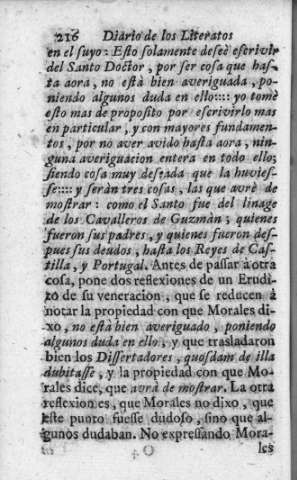 216 Diario de los Literatos
en el suyo: Esto solamente deseè escrivir
del Santo Doctor, por ser cosa que has-
ta aora, no està bien averiguada, po-
niendo algunos duda en ello::::: yo tomè
esto mas de proposito por escrivirlo mas
en particular, y con mayores fundamen-
tos, por no aver avido hasta aora, nin-
guna averiguacion entera en todo ello;
siendo cosa muy deseada que la huvies-
se::::: y seràn tres cosas, las que avrè de
mostrar: como el Santo fue del linage
de los Cavalleros de Guzmàn; quienes
fueron sus padres, y quienes fueron des-
pues sus deudos, hasta los Reyes de Cas-
tilla, y Portugal. Antes de passar à otra
cosa, pone dos reflexiones de un Erudi-
to de su veneracion, que se reducen à
notar la propiedad con que Morales di-
xo, no està bien averiguado, poniendo
algunos duda en ello; y que trasladaron
bien los Dissertadores, quosdam de illa
dubitasse, y la propiedad con que Mo-
rales dice, que avrà de mostrar. La otra
reflexion es, que Morales no dixo, que
este punto fuesse dudoso, sino que al-
gunos dudaban. No expressando Mora-
O les